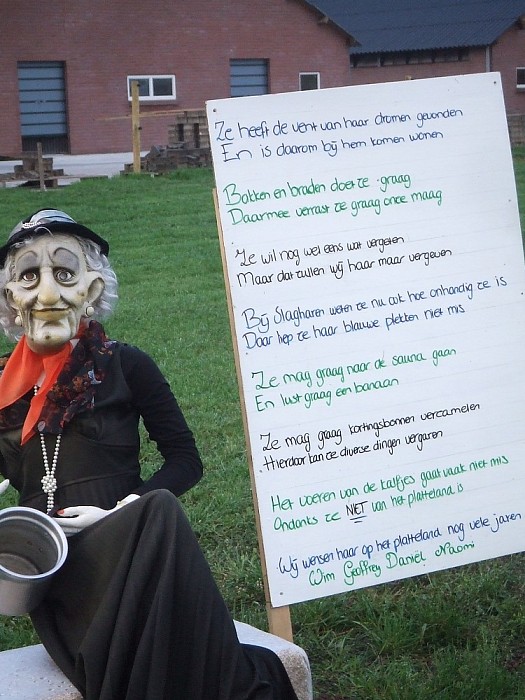 Ze heeft de vent van haar dromen gevonden
En is daarom bij hem komen wonen
Bakken en braden doet ze graag
Daarmee verrast ze graag onze maag
Ze wil nog wel eens wat vergeten
Maar dat zullen wij haar maar vergeven
Bij Slagharen weten ze nu ook hoe onhandig ze is
Daar liep ze haar blauwe plekken niet mis
Ze mag graag naar de sauna gaan
En lust graag een banaan
Ze mag graag kortingsbonnen verzamelen
Hierdoor kan ze diverse dingen vergaren
Het voeren van de kalfjes gaat vaak niet mis
Ondanks ze NIET van het platteland is
Wij wensen haar op het platteland nog vele jaren
Wim Geoffrey Daniël Naomi